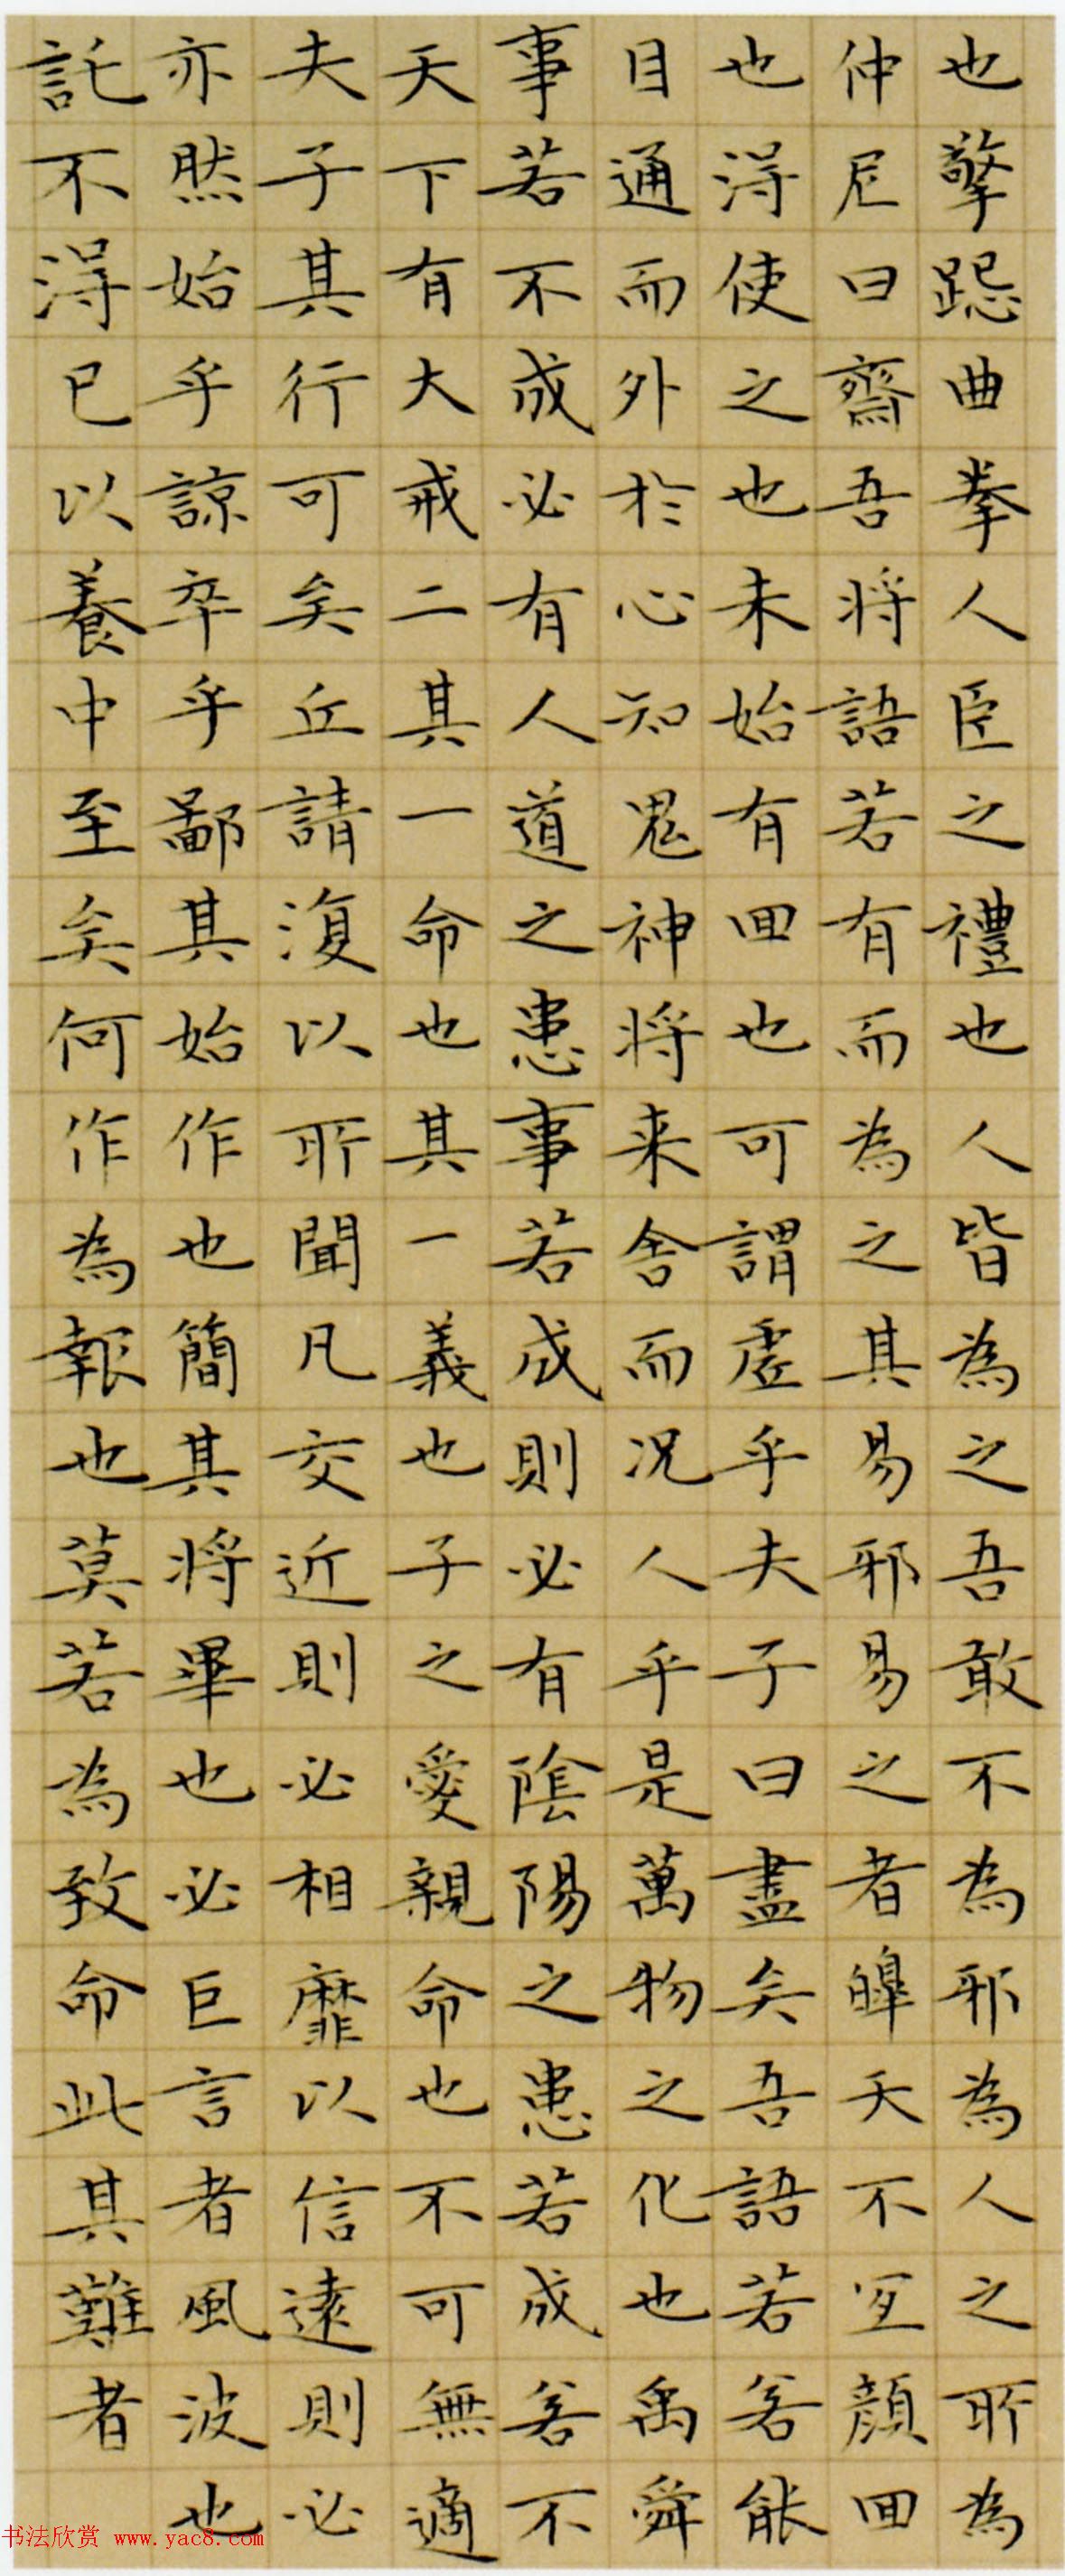 也擎跽曲拳人臣之禮也人皆為之吾敢不為邪為人之所為
仲尼曰齋吾将語若有而為之其易邪易之者皞天不宜顏回
也得使之也未始有回也可謂虛乎夫子曰盡矣吾語若若能
目通而外於心知鬼神将来舍而况人乎是萬物之化也禹舜
事若不成必有人道之患事若成則必有陰陽之患若成若不
天下有大戒二其一命也其一義也子之愛親命也不可無適
夫子其行可矣丘請復以所聞凡交近則必相靡以信遠則必
亦然始乎諒卒乎鄙其始作也簡其将畢也必巨言者風波也
託不得已以養中至矣何作為報也莫若為致命此其難者
书法欣赏 www.yac8.com